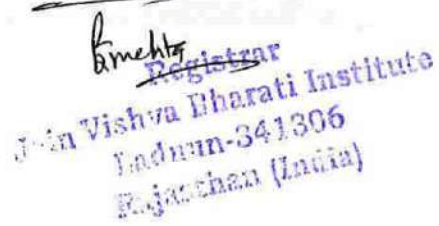 Bmehta
Registrar
Jain Vishva Bharati Institute
Ladnun-341306
Rajasthan (India)